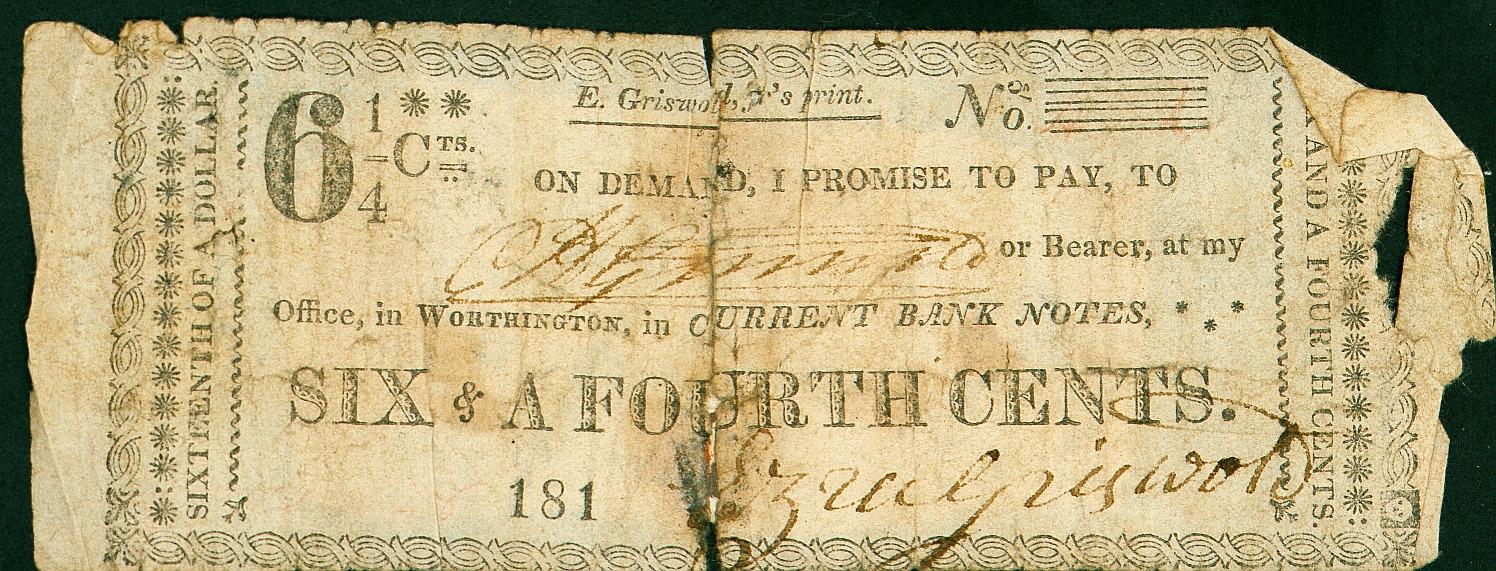 SIXTEENTH OF A DOLLAR.
6 1/4 CTS.
E. Griswold, Jr's print.
No.
ON DEMAND, I PROMISE TO PAY, TO
Griswold or Bearer, at my
Office, in WORTHINGTON, in CURRENT BANK NOTES,
SIX & A FOURTH CENTS.
181 Ezra Griswold
X AND A FOURTH CENTS.